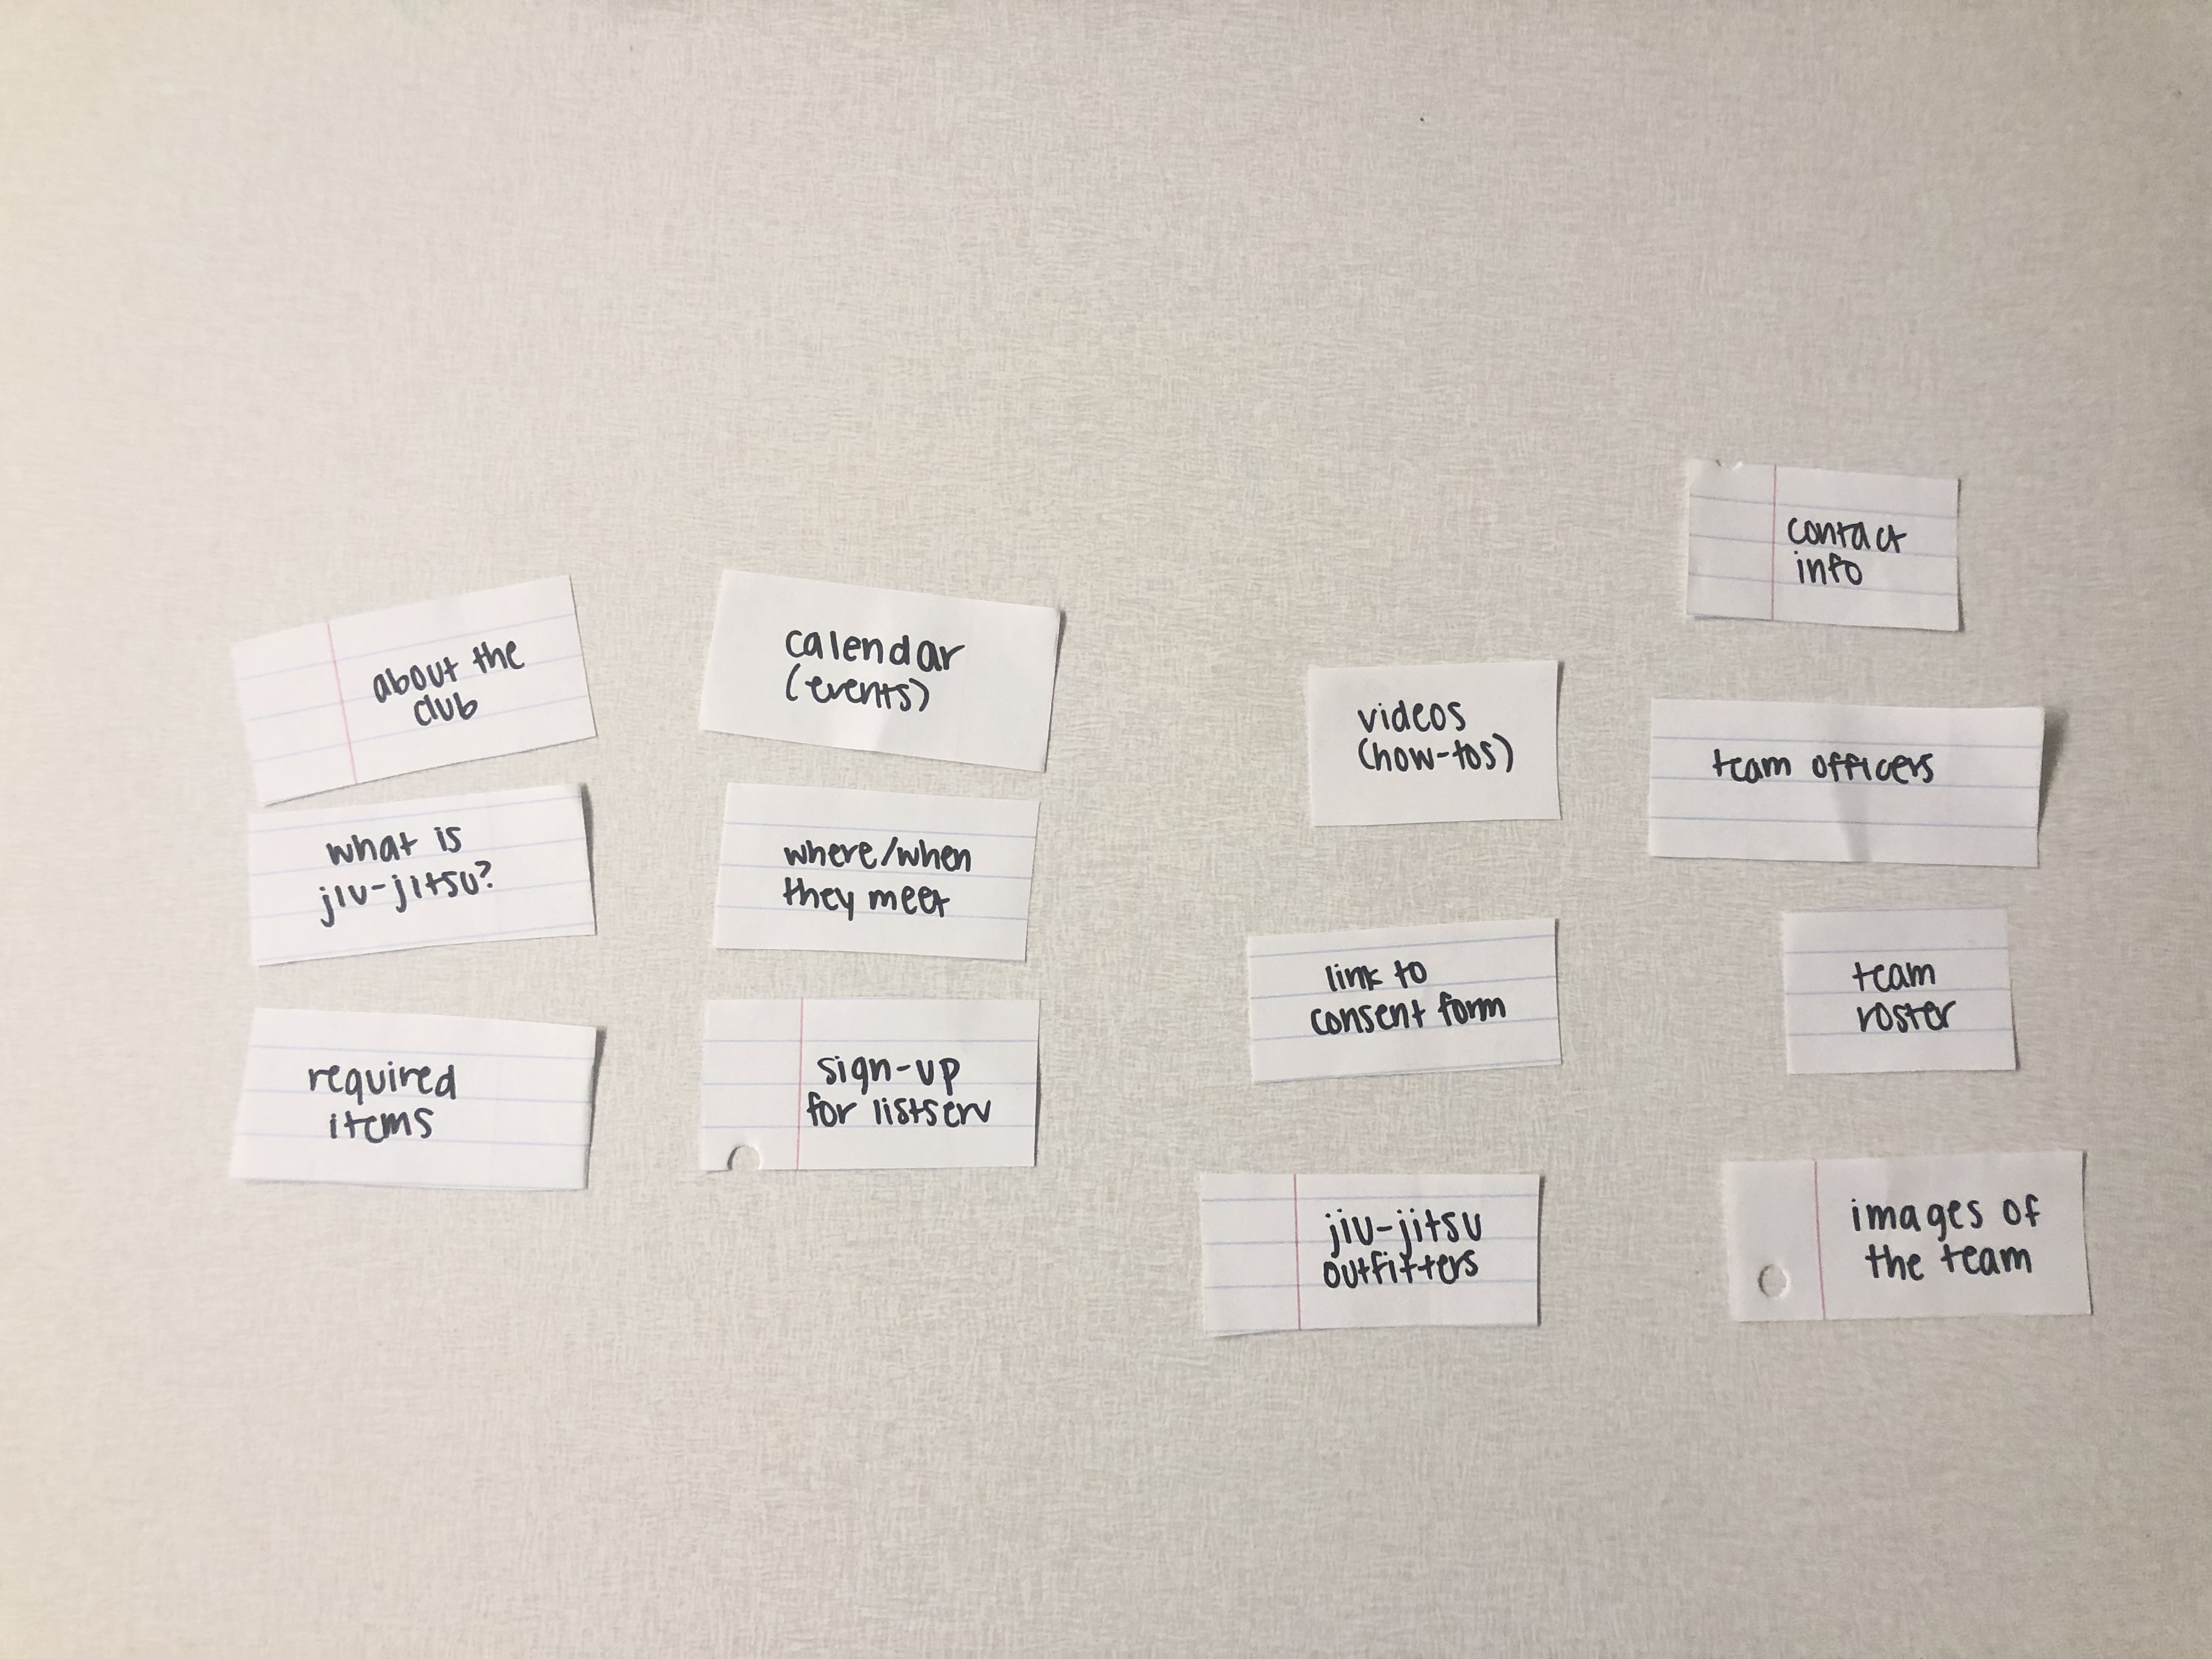 about the
club
what is
jiu-jitsu?
required
items
calendar
(events)
where/when
they meet
sign-up
for listserv
videos
(how-tos)
link to
consent form
jiu-jitsu
outfitters
contact
info
team officers
team
roster
images of
the team